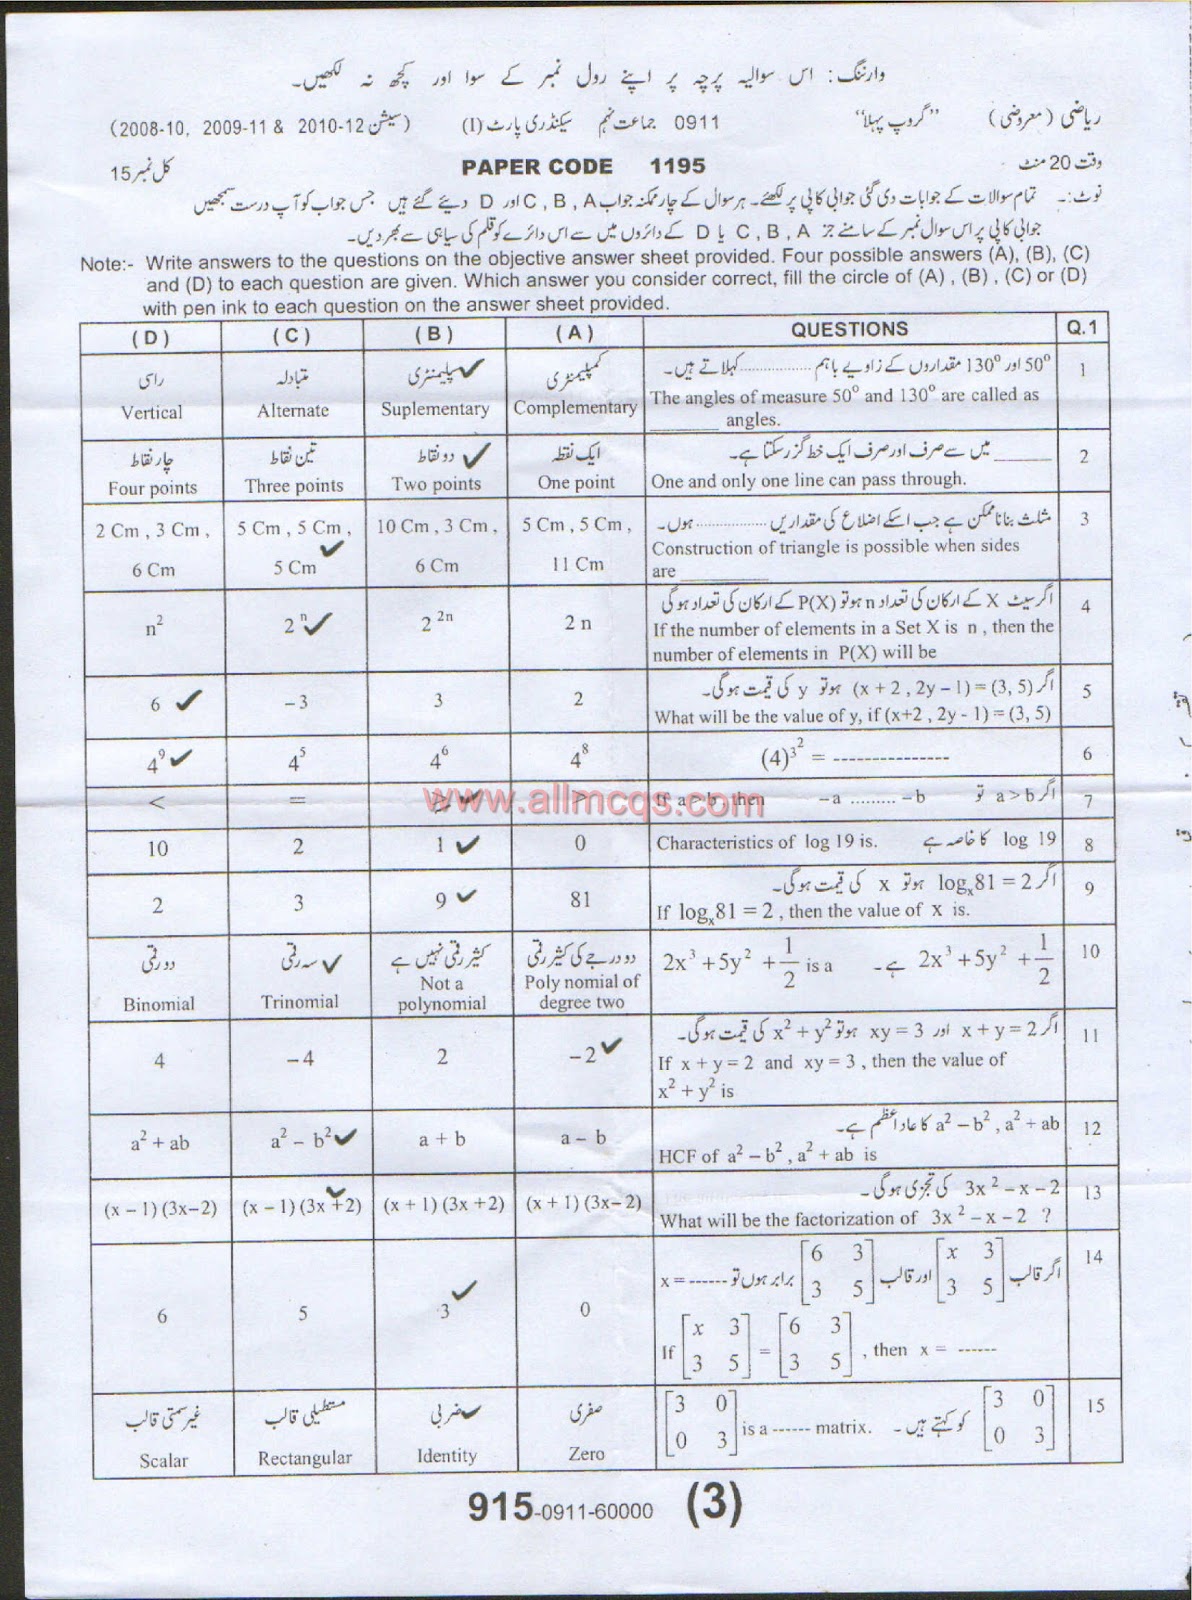 وارننگ: اس سوالیہ پرچہ پر اپنے رول نمبر کے سوا اور کچھ نہ لکھیں۔
ریاضی (معروضی) ”گروپ پہلا“ 0911 جماعت نہم سیکنڈری پارٹ (I) (سیشن 2010-12 & 2009-11, 2008-10)
وقت 20 منٹ PAPER CODE 1195 کل نمبر 15
نوٹ:۔ تمام سوالات کے جوابات دی گئی جوابی کاپی پر لکھئے۔ ہر سوال کے چار ممکنہ جواب C , B , A اور D دیئے گئے ہیں جس جواب کو آپ درست سمجھیں
جوابی کاپی پر اس سوال نمبر کے سامنے جز C , B , A یا D کے دائروں میں سے اس دائرے کو قلم کی سیاہی سے بھر دیں۔
Note:- Write answers to the questions on the objective answer sheet provided. Four possible answers (A), (B), (C)
and (D) to each question are given. Which answer you consider correct, fill the circle of (A) , (B) , (C) or (D)
with pen ink to each question on the answer sheet provided.
( D ) ( C ) ( B ) ( A ) QUESTIONS Q.1
راسی متبادلہ سپلیمنٹری کمپلیمنٹری 50⁰ اور 130⁰ مقداروں کے زاویے باہم .................. کہلاتے ہیں۔ 1
Vertical Alternate Suplementary Complementary The angles of measure 50⁰ and 130⁰ are called as
________ angles.
چار نقاط تین نقاط دو نقاط ایک نقطہ ______ میں سے صرف اور صرف ایک خط گزر سکتا ہے۔ 2
Four points Three points Two points One point One and only one line can pass through.
2 Cm , 3 Cm , 5 Cm , 5 Cm , 10 Cm , 3 Cm , 5 Cm , 5 Cm , مثلث بنانا ممکن ہے جب اسکے اضلاع کی مقداریں .................. ہوں۔ 3
6 Cm 5 Cm 6 Cm 11 Cm Construction of triangle is possible when sides
are __________
n² 2ⁿ 2²ⁿ 2 n اگر سیٹ X کے ارکان کی تعداد n ہو تو P(X) کے ارکان کی تعداد ہوگی 4
If the number of elements in a Set X is n , then the
number of elements in P(X) will be
6 – 3 3 2 اگر (x + 2 , 2y – 1) = (3, 5) ہو تو y کی قیمت ہوگی۔ 5
What will be the value of y, if (x+2 , 2y - 1) = (3, 5)
4⁹ 4⁵ 4⁶ 4⁸ (4)^3^2 = --------------- 6
< = ≥ > If a > b , then – a ......... – b اگر a > b تو 7
www.allmcqs.com
10 2 1 0 Characteristics of log 19 is. log 19 کا خاصہ ہے 8
2 3 9 81 اگر logₓ81 = 2 ہو تو x کی قیمت ہوگی۔ 9
If logₓ81 = 2 , then the value of x is.
دو رقمی سہ رقمی کثیر رقمی نہیں ہے دو درجے کی کثیر رقمی 2x³ +5y² + 1/2 is a 2x³ +5y² + 1/2 ہے۔ 10
Binomial Trinomial Not a polynomial Poly nomial of degree two
4 – 4 2 – 2 اگر x + y = 2 اور xy = 3 ہو تو x² + y² کی قیمت ہوگی۔ 11
If x + y = 2 and xy = 3 , then the value of
x² + y² is
a² + ab a² – b² a + b a – b a² – b² , a² + ab کا عاد اعظم ہے۔ 12
HCF of a² – b² , a² + ab is
(x – 1) (3x–2) (x – 1) (3x +2) (x + 1) (3x +2) (x + 1) (3x– 2) 3x² – x – 2 کی تجزی ہوگی۔ 13
What will be the factorization of 3x² – x – 2 ?
6 5 3 0 اگر قالب [x 3 3 5] اور قالب [6 3 3 5] برابر ہوں تو x = ------ 14
If [x 3 3 5] = [6 3 3 5] , then x = ------
غیر سمتی قالب مستطیلی قالب ضربی صفری [3 0 0 3] is a ------ matrix. [3 0 0 3] کو کہتے ہیں۔ 15
Scalar Rectangular Identity Zero
915-0911-60000 (3)